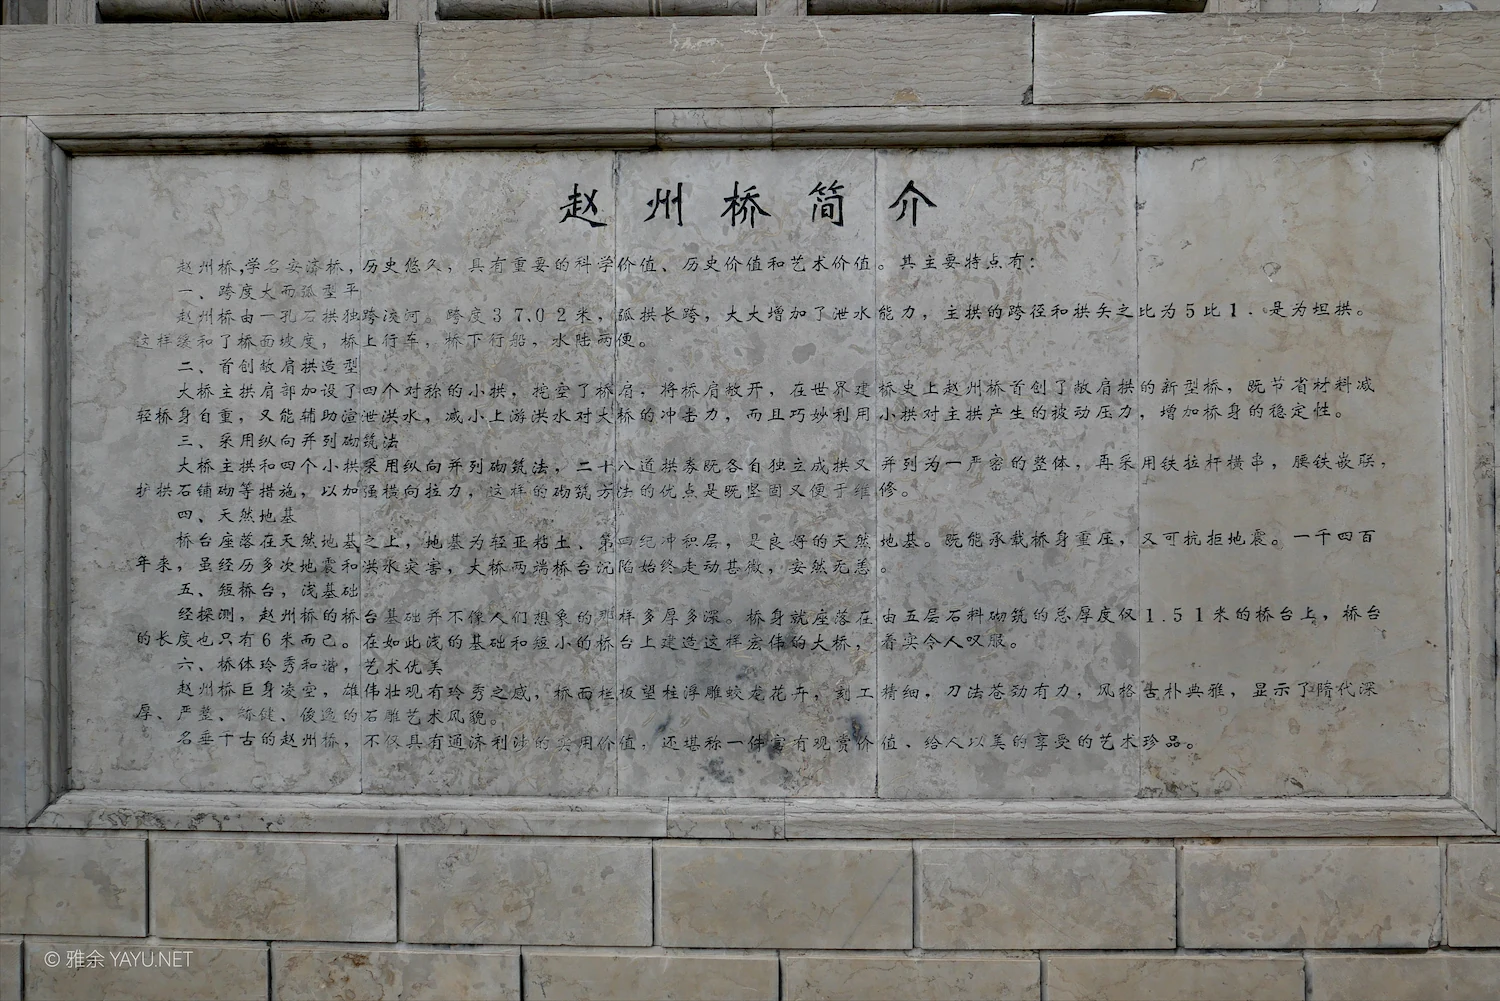 赵州桥简介
赵州桥,学名安济桥，历史悠久，具有重要的科学价值、历史价值和艺术价值。其主要特点有：
一、跨度大而弧型平
赵州桥由一孔石拱独跨洨河。跨度37.02米，弧拱长跨，大大增加了泄水能力，主拱的跨径和拱矢之比为5比1．是为坦拱。
这样缓和了桥面坡度，桥上行车，桥下行船，水陆两便。
二、首创敞肩拱造型
大桥主拱肩部加设了四个对称的小拱，挖空了桥肩，将桥肩敞开，在世界建桥史上赵州桥首创了敞肩拱的新型桥，既节省材料减
轻桥身自重，又能辅助渲泄洪水，减小上游洪水对大桥的冲击力，而且巧妙利用小拱对主拱产生的被动压力，增加桥身的稳定性。
三、采用纵向并列砌筑法
大桥主拱和四个小拱采用纵向并列砌筑法，二十八道拱券既各自独立成拱又并列为一严密的整体，再采用铁拉杆横串，腰铁嵌联，
护拱石铺砌等措施，以加强横向拉力，这样的砌筑方法的优点是既坚固又便于维修。
四、天然地基
桥台座落在天然地基之上，地基为轻亚粘土、第四纪冲积层，是良好的天然地基。既能承载桥身重压，又可抗拒地震。一千四百
年来，虽经历多次地震和洪水灾害，大桥两端桥台沉陷始终走动甚微，安然无恙。
五、短桥台，浅基础
经探测，赵州桥的桥台基础并不像人们想象的那样多厚多深。桥身就座落在由五层石料砌筑的总厚度仅1.51米的桥台上，桥台
的长度也只有6米而已。在如此浅的基础和短小的桥台上建造这样宏伟的大桥，着实令人叹服。
六、桥体玲秀和谐，艺术优美
赵州桥巨身凌空，雄伟壮观有玲秀之感，桥面栏板望柱浮雕蛟龙花卉，刻工精细，刀法苍劲有力，风格古朴典雅，显示了隋代深
厚、严整、矫健、俊逸的石雕艺术风貌。
名垂千古的赵州桥，不仅具有通济利涉的实用价值，还堪称一件富有观赏价值、给人以美的享受的艺术珍品。
© 雅余 YAYU.NET